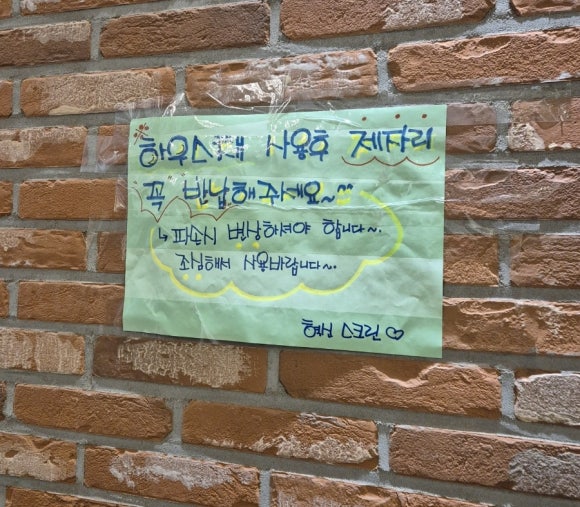 ※ 하우스채 사용후 제자리
꼭 반납해주세요~^^
↳ 파손시 변상하셔야 합니다~.
조심해서 사용바랍니다~.
스크린 ♡